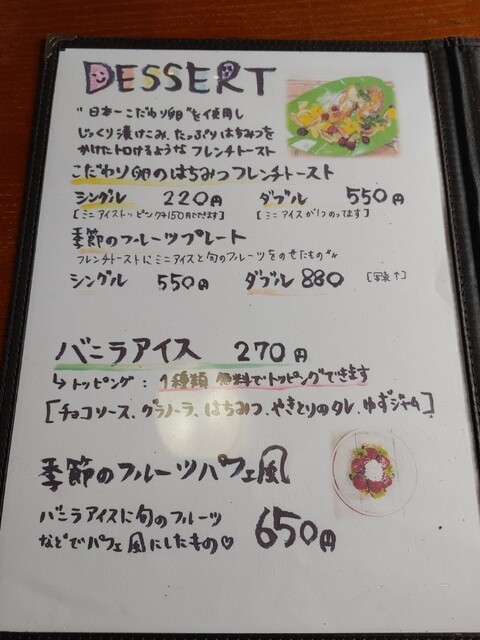 DESSERT
"日本一こだわり卵"を使用し
じっくり漬けこみ、たっぷりはちみつを
かけたトロけるような フレンチトースト
こだわり卵のはちみつフレンチトースト
シングル 220円 ダブル 550円
[ミニアイストッピング+150円でできます] [ミニアイスが1つのってます]
季節のフルーツプレート
フレンチトーストにミニアイスと旬のフルーツをのせたもの
シングル 550円 ダブル 880 [写真↑]
バニラアイス 270円
↳ トッピング : 1種類 無料でトッピングできます
[チョコソース、グラノーラ、はちみつ、やきとりのタレ、ゆずジャム]
季節のフルーツパフェ風
バニラアイスに旬のフルーツ
などでパフェ風にしたもの♡ 650円